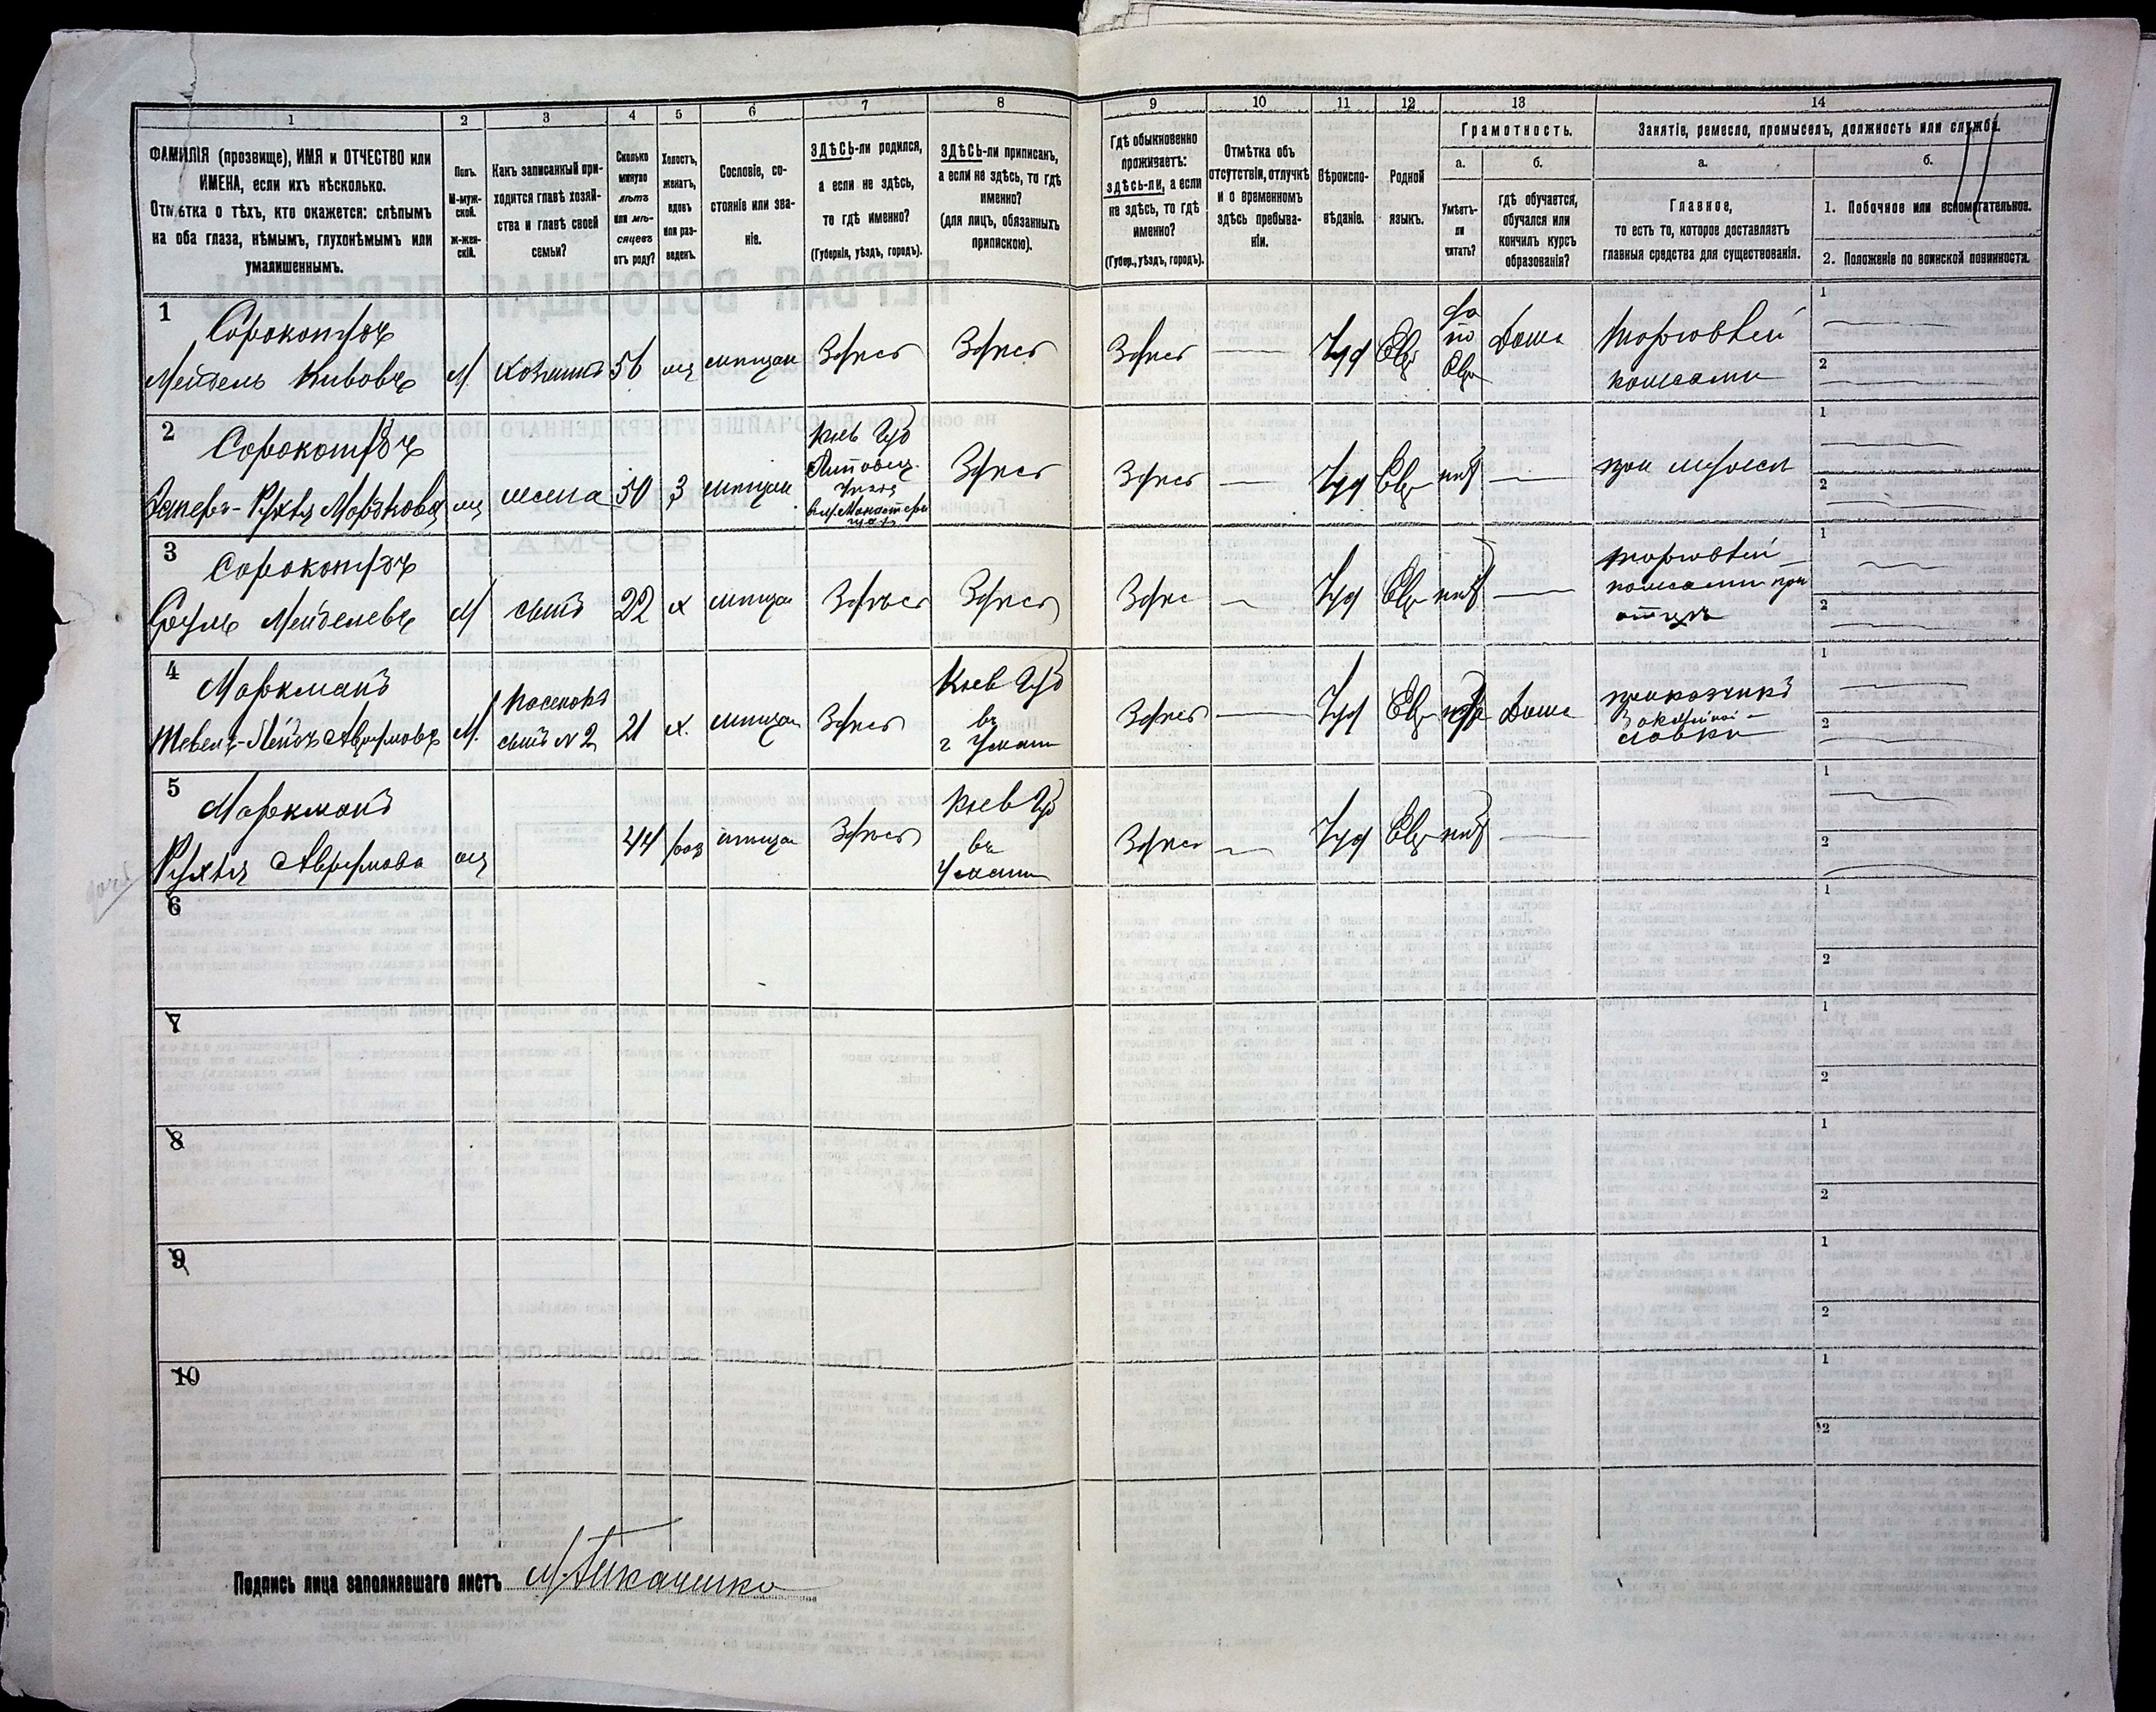 1
2
3
4
5
6
7
8
9
10
11
12
13
14
ФАМИЛІЯ (прозвище), ИМЯ и ОТЧЕСТВО или
ИМЕНА, если ихъ нѣсколько.
Отмѣтка о тѣхъ, кто окажется: слѣпымъ
на оба глаза, нѣмымъ, глухонѣмымъ или
умалишеннымъ.
Полъ.
М-муж-
ской.
Ж-жен-
скій.
Какъ записанный при-
ходится главѣ хозяй-
ства и главѣ своей
семьи?
Сколько
минуло
лѣтъ
или мѣ-
сяцевъ
отъ роду?
Холостъ,
женатъ,
вдовъ
или раз-
веденъ.
Сословіе, со-
стояніе или зва-
ніе.
ЗДѢСЬ-ли родился,
а если не здѣсь,
то гдѣ именно?
(Губернія, уѣздъ, городъ).
ЗДѢСЬ-ли приписанъ,
а если не здѣсь, то гдѣ
именно?
(для лицъ, обязанныхъ
припискою).
Гдѣ обыкновенно
проживаетъ:
здѣсь-ли, а если
не здѣсь, то гдѣ
именно?
(Губер., уѣздъ, городъ).
Отмѣтка объ
отсутствіи, отлучкѣ
и о временномъ
здѣсь пребыва-
ніи.
Вѣроиспо-
вѣданіе.
Родной
языкъ.
Грамотность.
а.
б.
Умѣетъ-
ли
читать?
гдѣ обучается,
обучался или
кончилъ курсъ
образованія?
Занятіе, ремесло, промыселъ, должность или служба.
а.
б.
Главное,
то есть то, которое доставляетъ
главныя средства для существованія.
1. Побочное или вспомогательное.
2. Положеніе по воинской повинности.
1
Сорокотягъ
Мейдель Кивовъ
М
Хозяинъ
56
мѣщан
Здѣсь
Здѣсь
Здѣсь
Іуд
Евр
да
по
Евр
Дома
торговлей
кожами
1
2
2
Сорокотягъ
Эстеръ-Рухля Морзкова
жена
50
З
мѣщан
Кіев Губ
Липовец.
Здѣсь
Здѣсь
Іуд
Евр
нѣт
при мужѣ
1
2
3
Сорокотягъ
Сруль Мейделевъ
М
сынъ
22
х
мѣща
Здѣсь
Здѣсь
Здѣс
Іуд
Евр
нѣт
торговлей
кожами при
отцѣ
1
2
4
Маркманъ
Тевель-Лейбъ Аврумовъ
М.
сынъ N 2
21
х.
мѣща
Здѣсь
Кіев Губ
въ
г Умани
Здѣсь
Іуд
Евр
Дома
приказчикъ
лавки
1
2
5
Маркманъ
Рухля Аврумова
44
мѣща
Здѣсь
Кіев Губ
въ
Умани
Здѣсь
Іуд
Евр
нѣт
1
2
6
1
2
7
1
2
8
1
2
9
1
2
10
1
2
Подпись лица заполнявшаго листъ М. Ткаченко